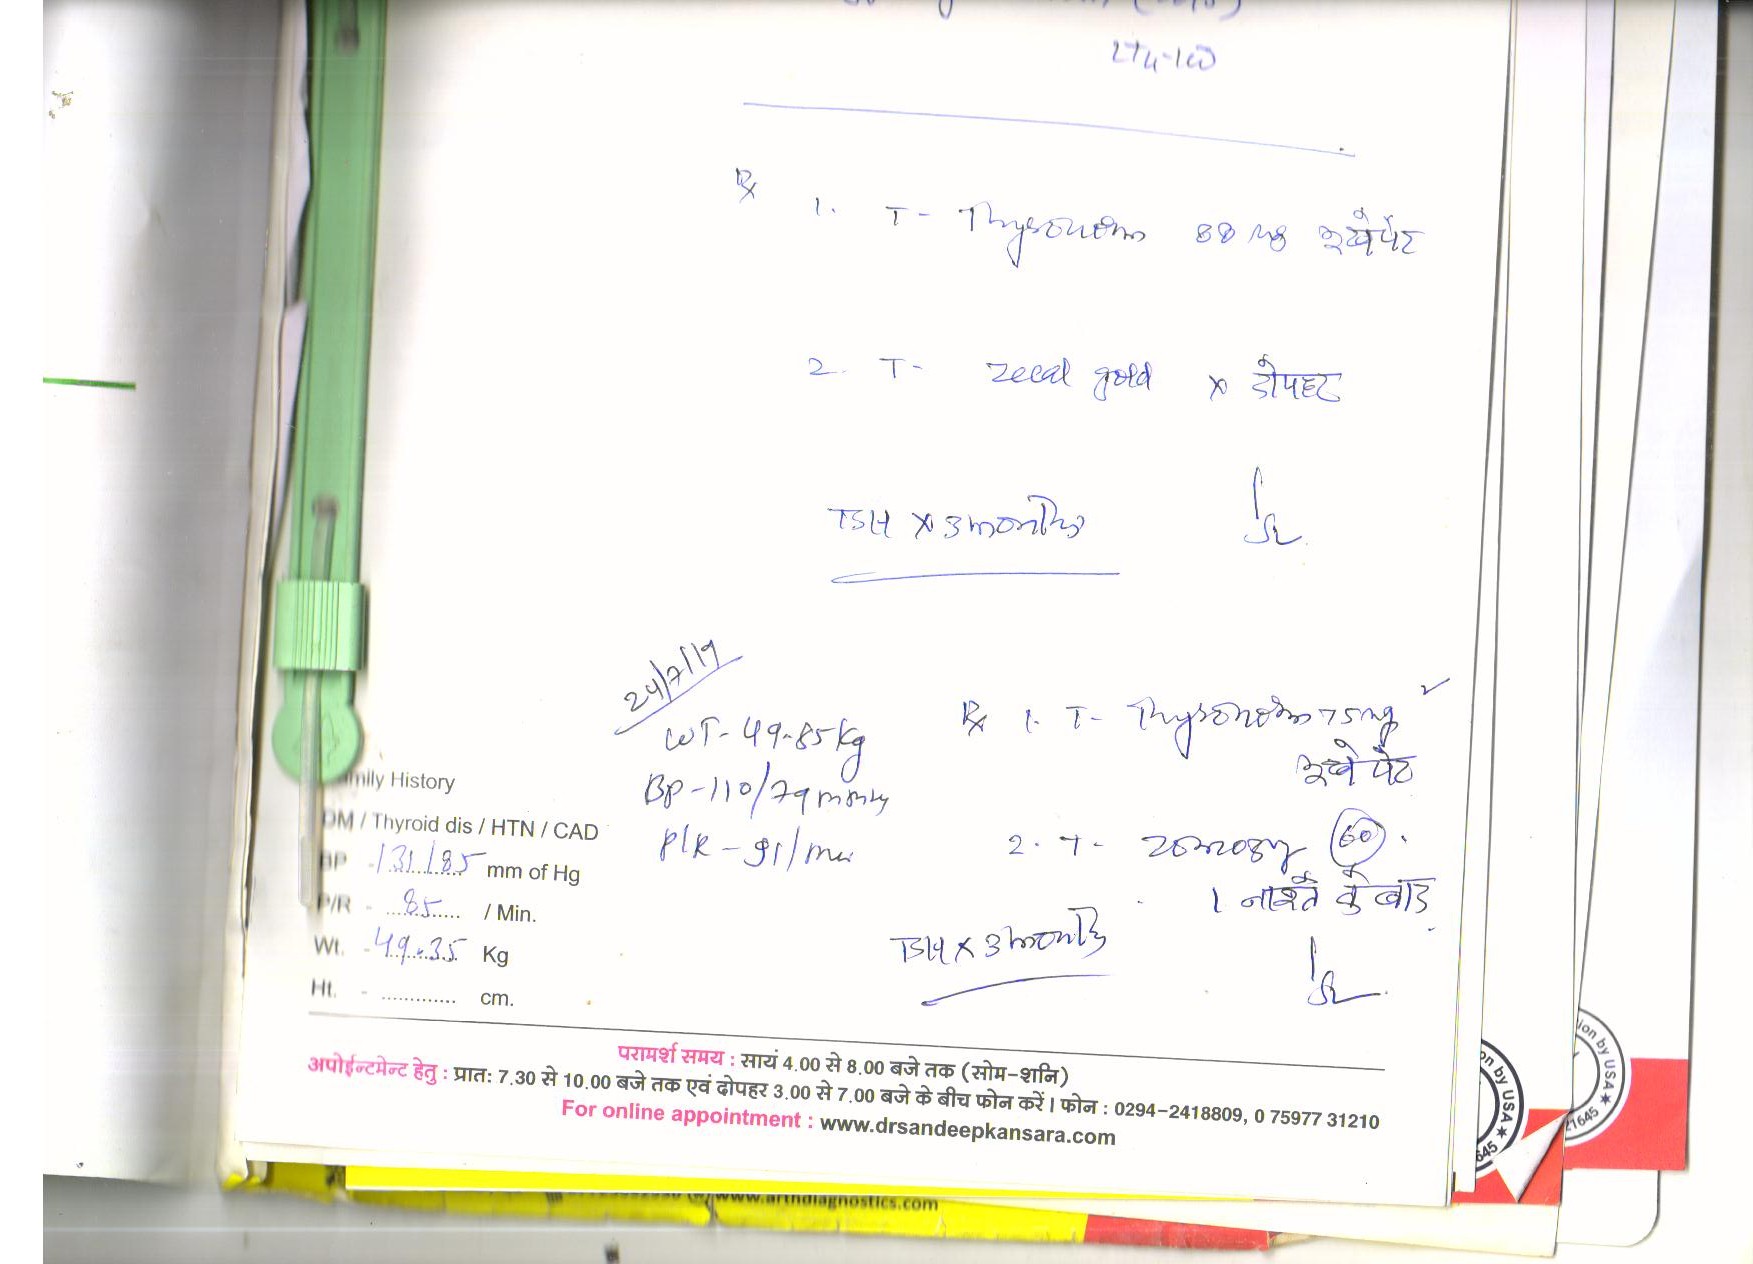 Rx
1. T- Thyronorm 88 mg भूखे पेट
2. T- zecal gold x दोपहर
TSH x 3 months
24/7/19
WT- 49.85 kg
BP- 110/79 mmHg
P/R - 91/min
Rx 1. T- Thyronorm 75 mg
भूखे पेट
2. T- (60).
1 नाश्ते के बाद
TSH x 3 month
mily History
DM / Thyroid dis / HTN / CAD
BP - 131/85 mm of Hg
P/R - 85 / Min.
Wt. - 49.35 Kg
Ht. - ............. cm.
परामर्श समय : सायं 4.00 से 8.00 बजे तक (सोम-शनि)
अपोईन्टमेन्ट हेतु : प्रात: 7.30 से 10.00 बजे तक एवं दोपहर 3.00 से 7.00 बजे के बीच फोन करें। फोन : 0294-2418809, 0 75977 31210
For online appointment : www.drsandeepkansara.com
www.arthdiagnostics.com
on by USA
645
ion by USA
21645